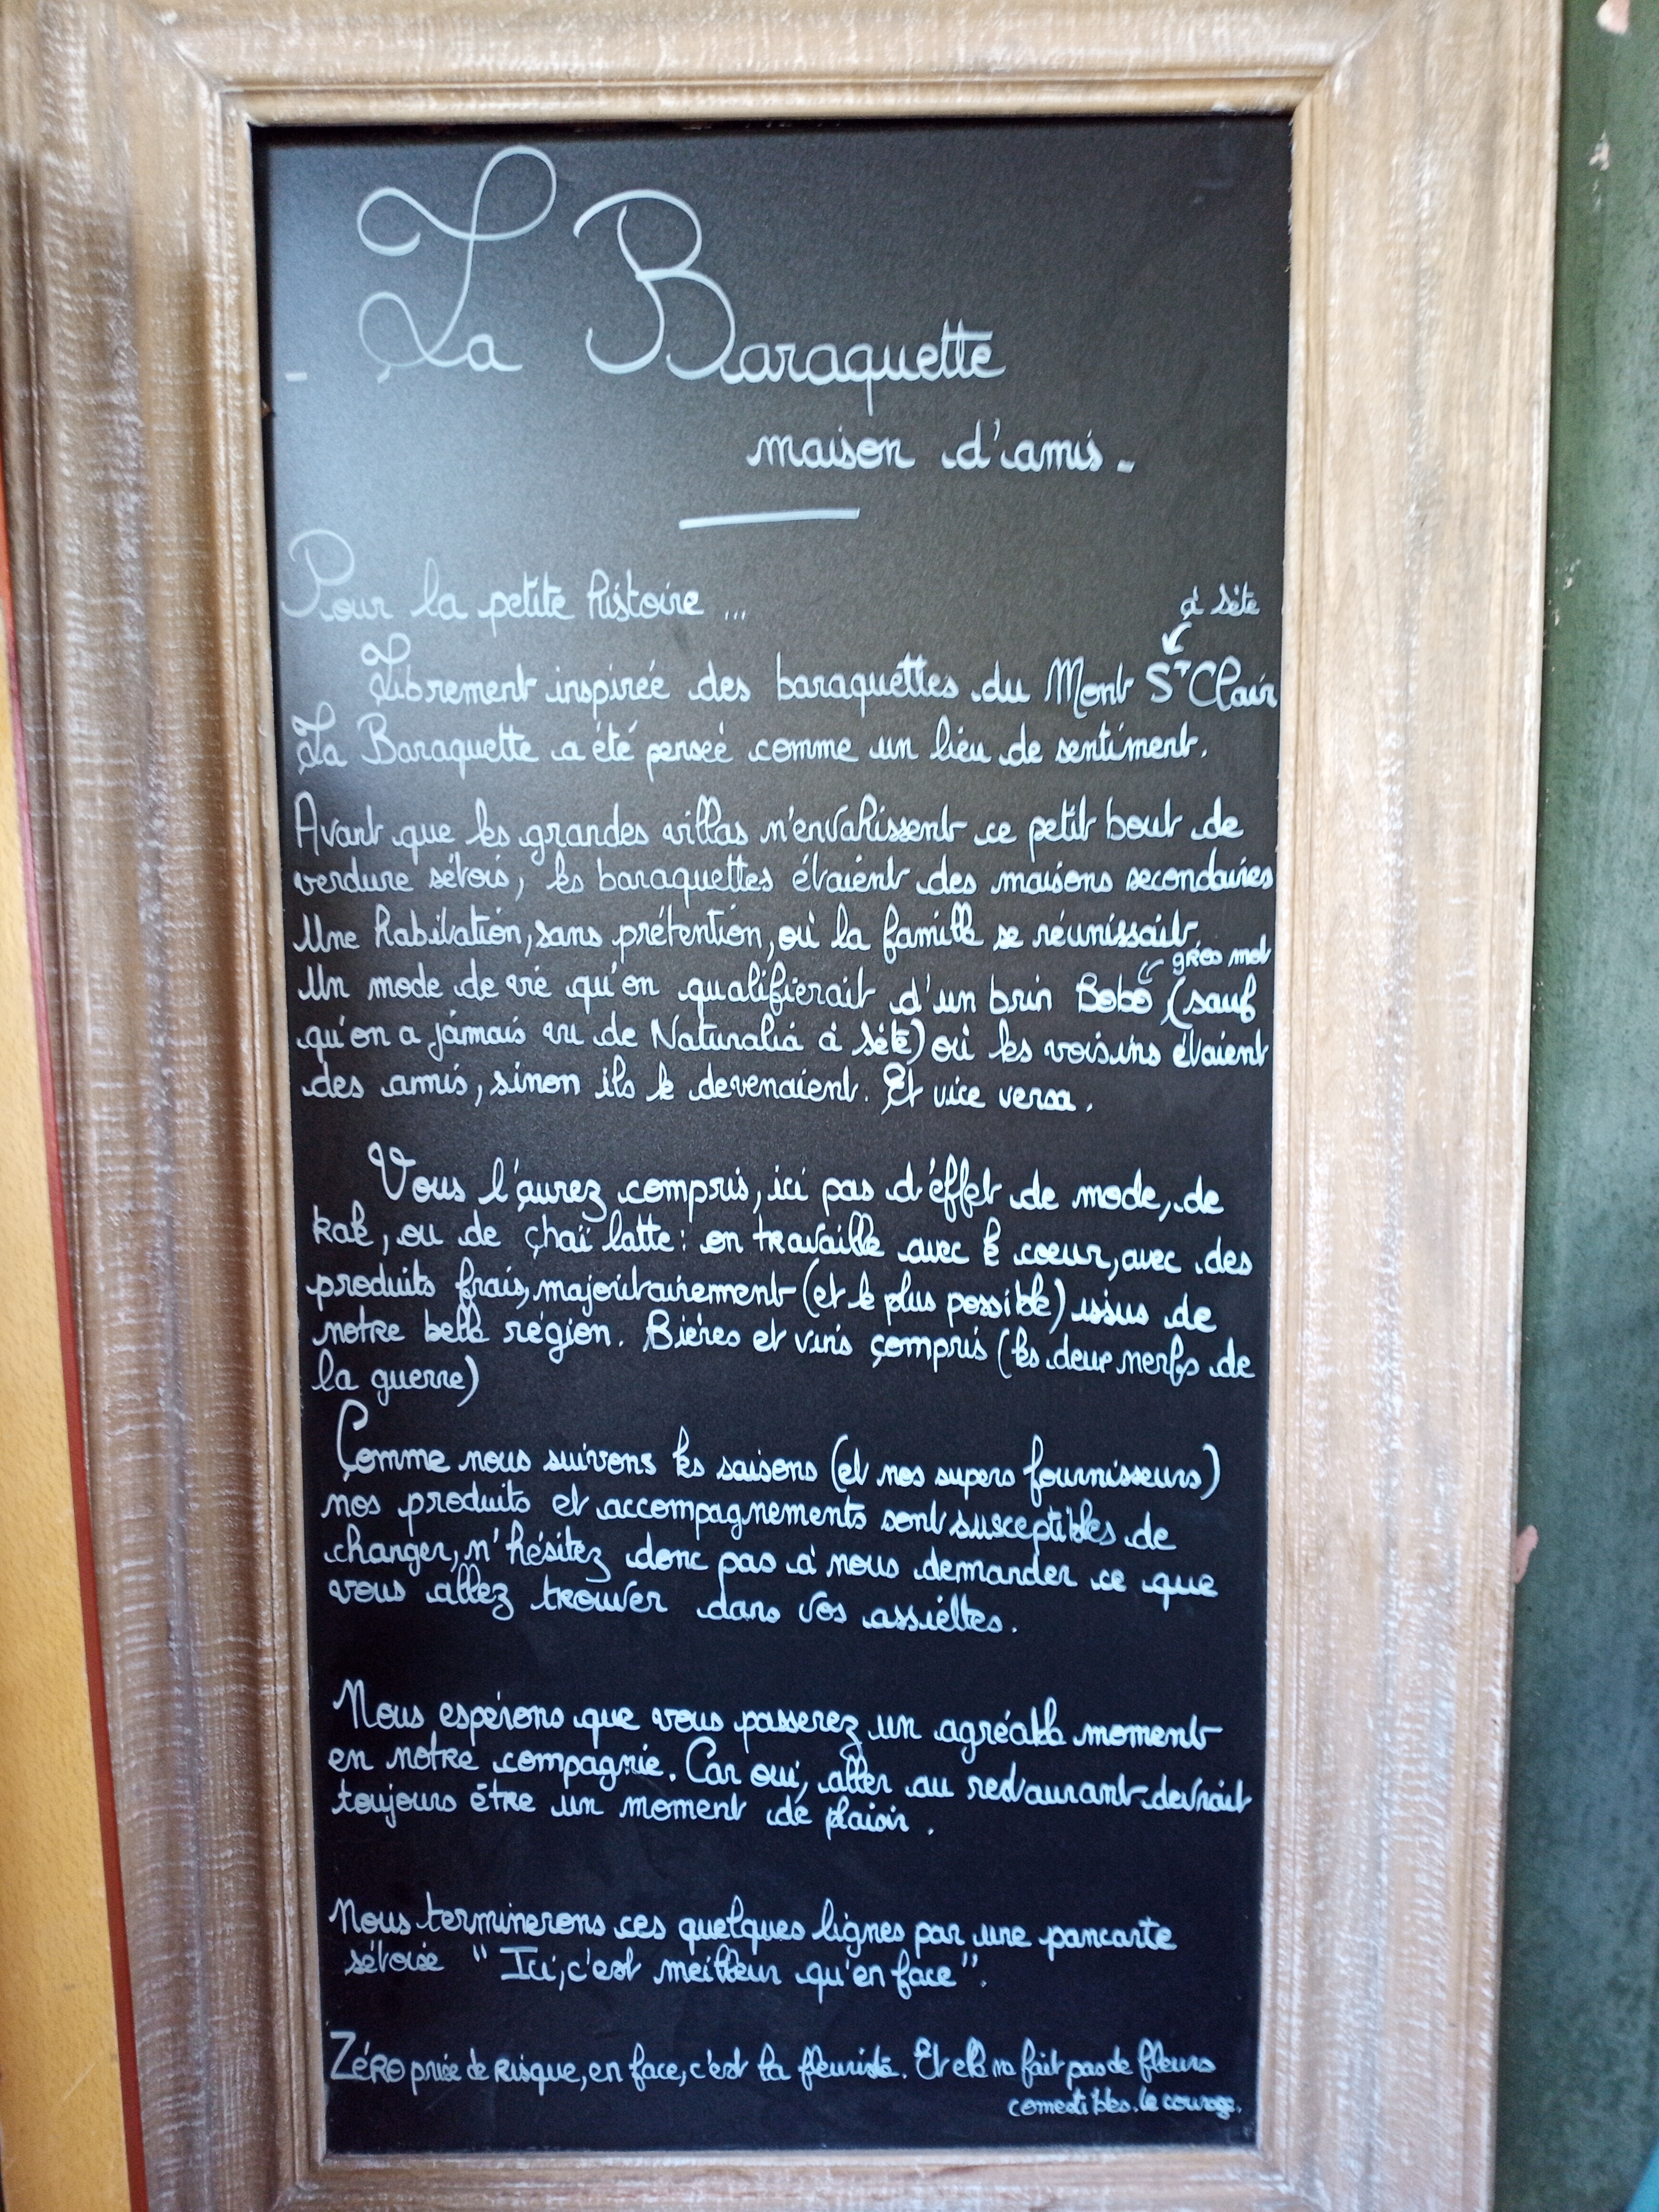 - La Baraquette
maison d'amis -
Pour la petite histoire ...
à Sète
Librement inspirée des baraquettes du Mont St Clair
La Baraquette a été pensée comme un lieu de sentiment.
Avant que les grandes villas n'envahissent ce petit bout de
verdure sétois, les baraquettes étaient des maisons secondaires
Une habitation, sans prétention, où la famille se réunissait
gros mot
Un mode de vie qu'on qualifierait d'un brin Bobo (sauf
qu'on a jamais vu de Naturalia à Sète) où les voisins étaient
des amis, sinon ils le devenaient. Et vice versa.
Vous l'aurez compris, ici pas d'effet de mode, de
kale, ou de chaï latte : on travaille avec le cœur, avec des
produits frais, majoritairement (et le plus possible) issus de
notre belle région. Bières et vins compris (les deux nerfs de
la guerre)
Comme nous suivons les saisons (et nos supers fournisseurs)
nos produits et accompagnements sont susceptibles de
changer, n'hésitez donc pas à nous demander ce que
vous allez trouver dans vos assiettes.
Nous espérons que vous passerez un agréable moment
en notre compagnie. Car oui, aller au restaurant devrait
toujours être un moment de plaisir.
Nous terminerons ces quelques lignes par une pancarte
sétoise "Ici, c'est meilleur qu'en face".
Zéro prise de risque, en face, c'est la fleuriste. Et elle fait pas de fleurs
comestibles. le courage.